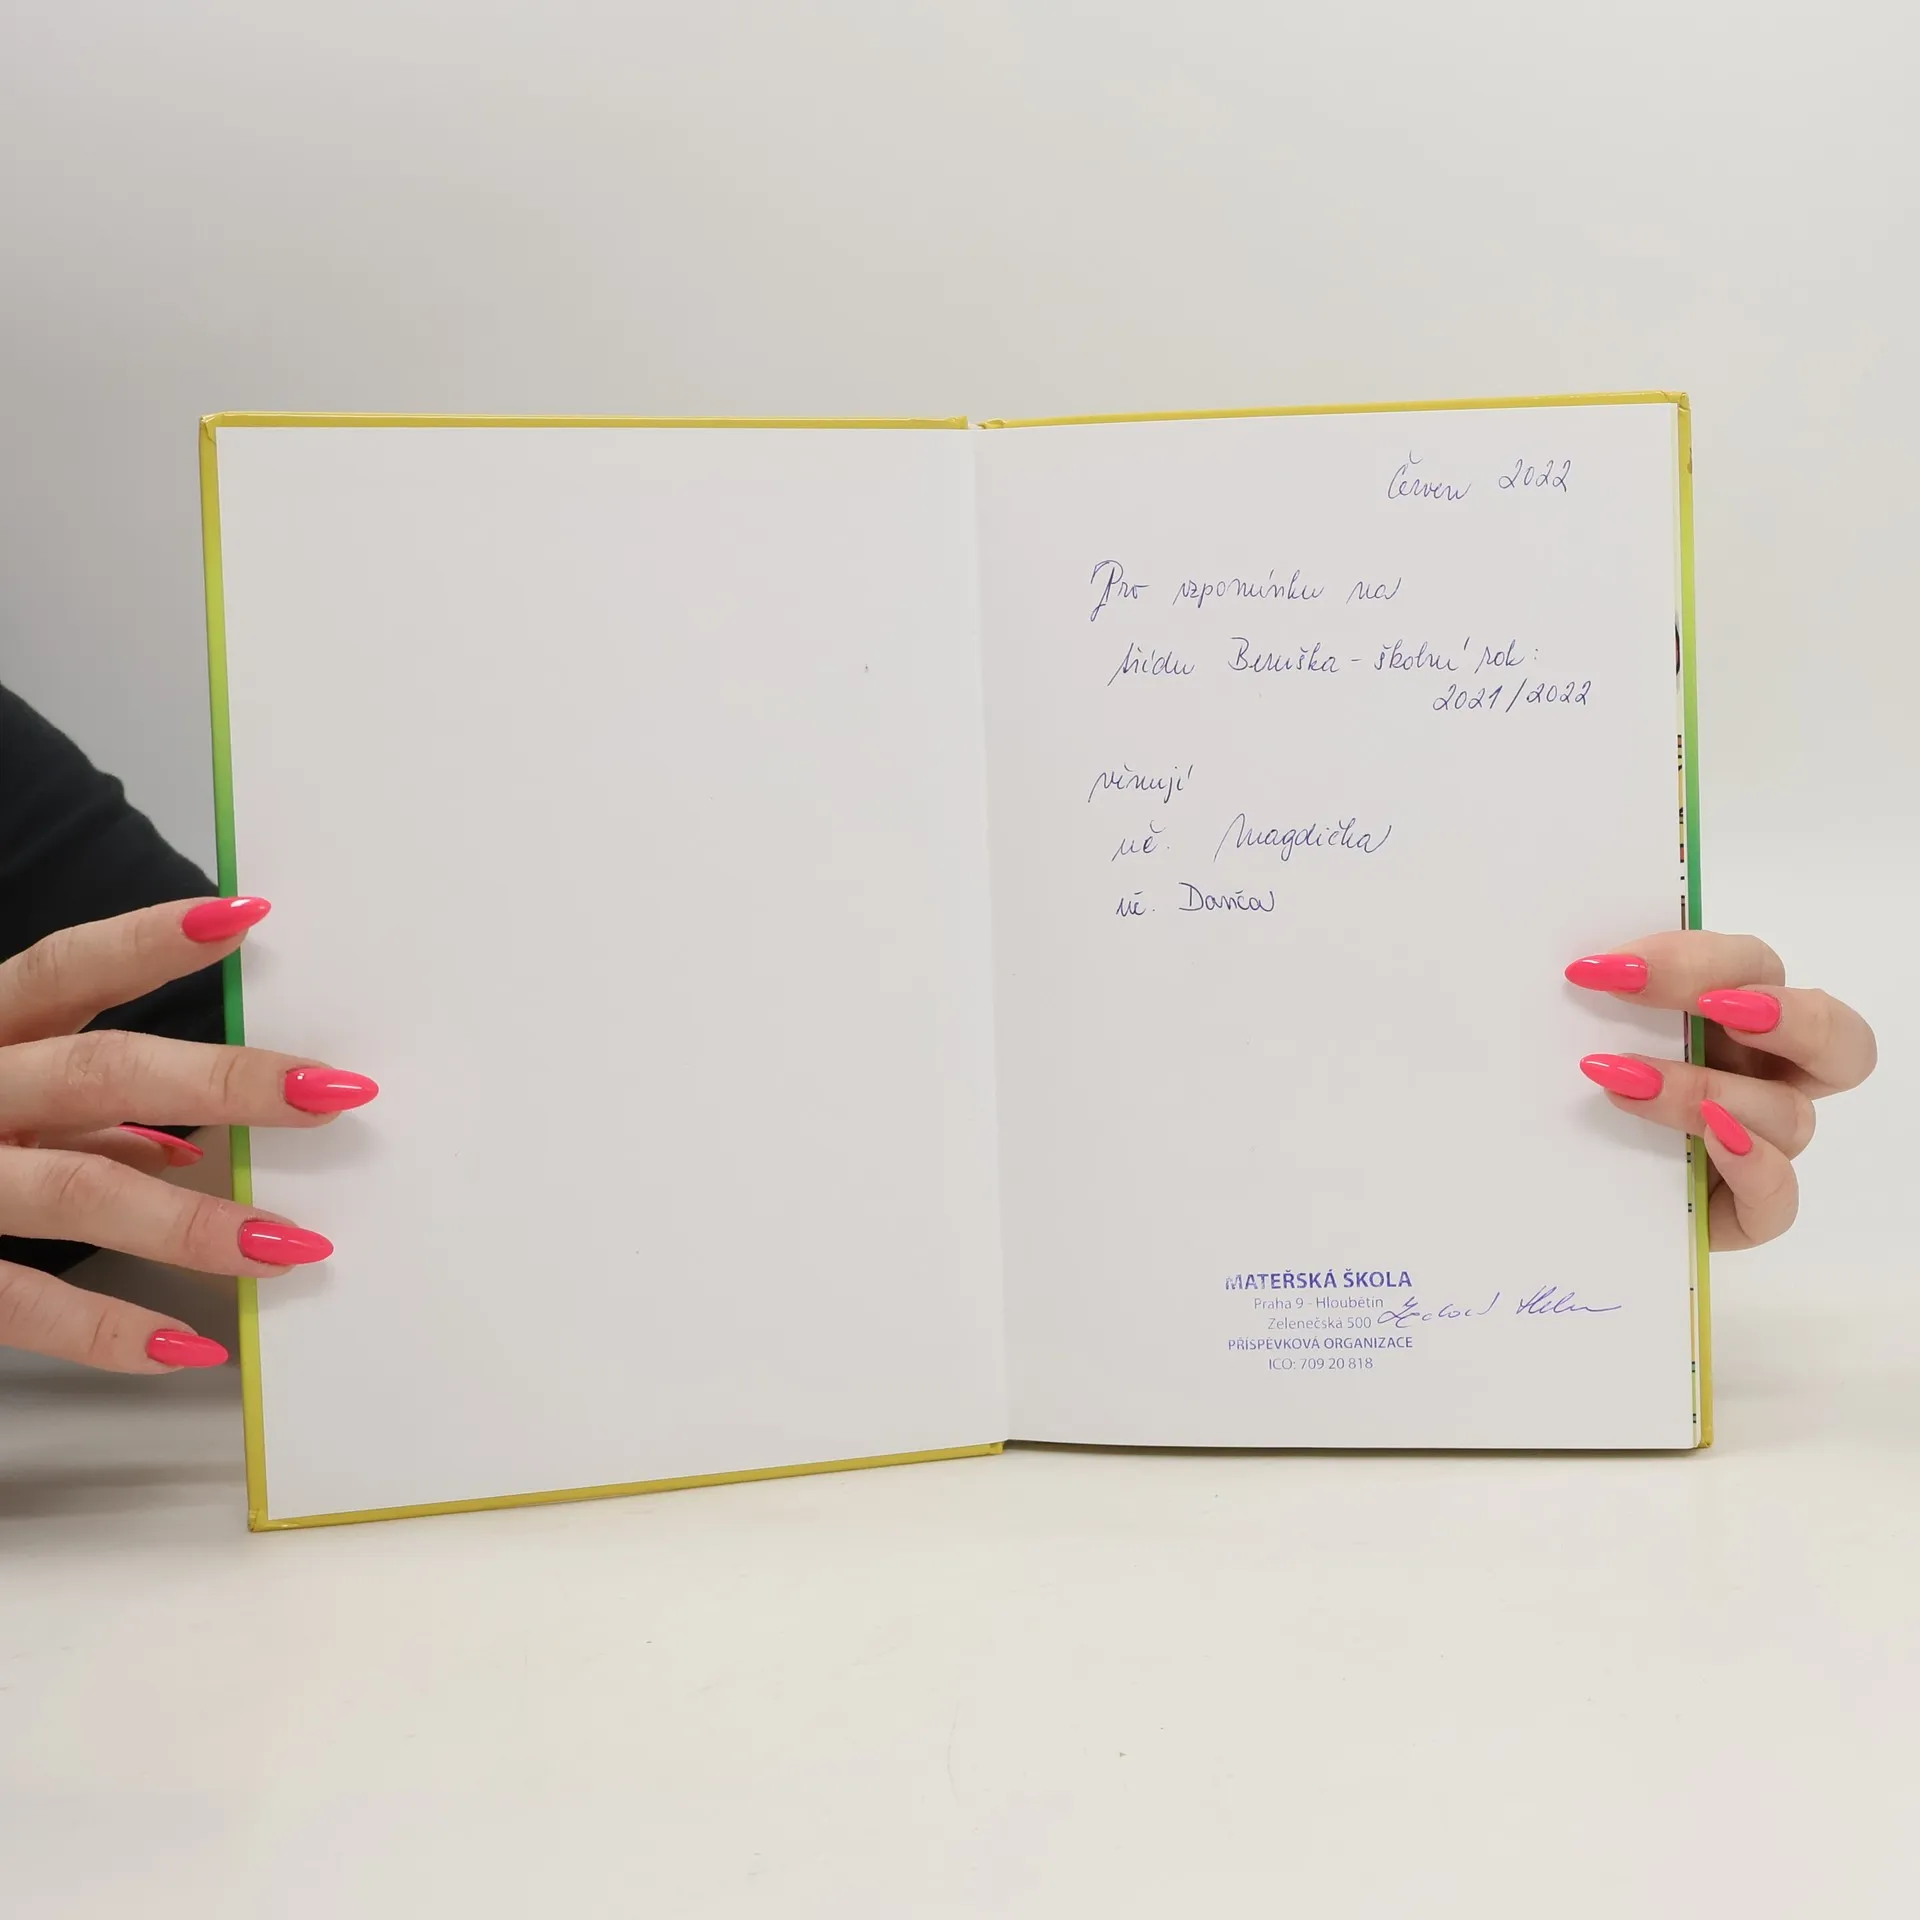 Červen 2022
Pro vzpomínku na
třídu Beruška - školní rok:
2021/2022
věnují
uč. Magdička
uč. Danča
MATEŘSKÁ ŠKOLA
Praha 9 - Hloubětín
Zelenečská 500
PŘÍSPĚVKOVÁ ORGANIZACE
ICO: 709 20 818